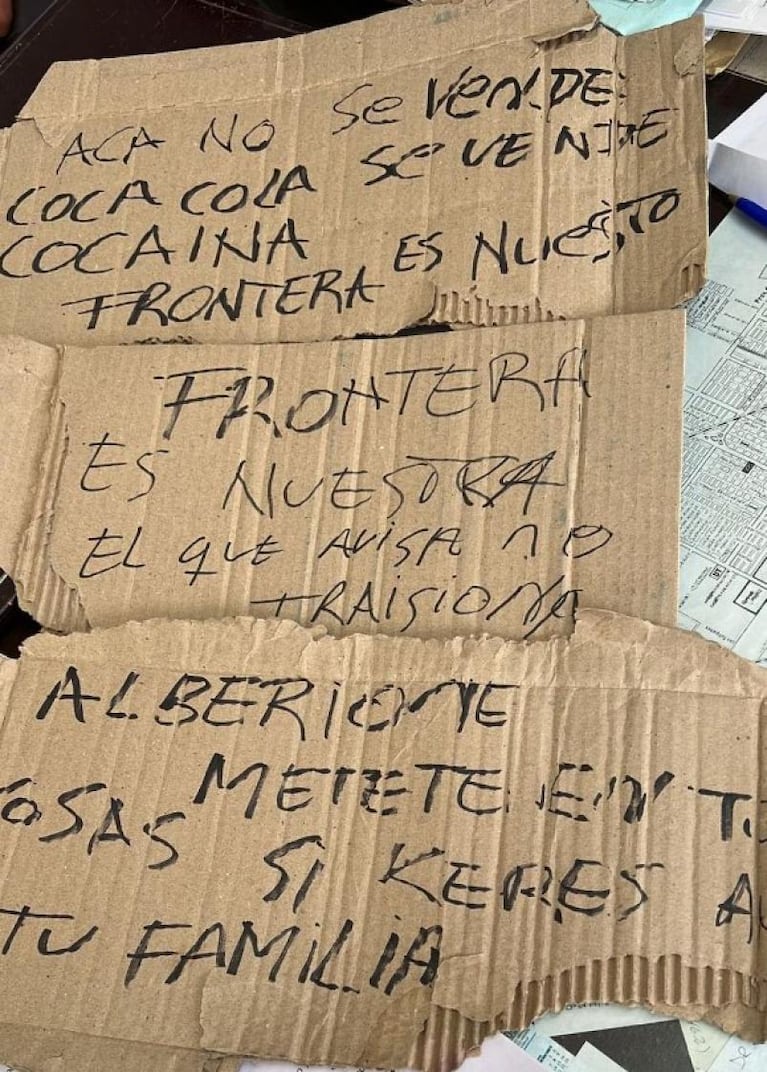 ACA NO Se VeNDE
COCA COLA Se VENDE
COCAINA ES NUESTO
FRONTERA
FRONTERA
ES NUESTRA
EL qUE AVISA no
TRAISIONA
ALBERIONE
METETE EN
COSAS SI KERES
TU FAMiLiA